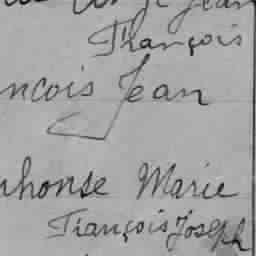 Jean
François
ncois Jean
phonse Marie
François Joseph